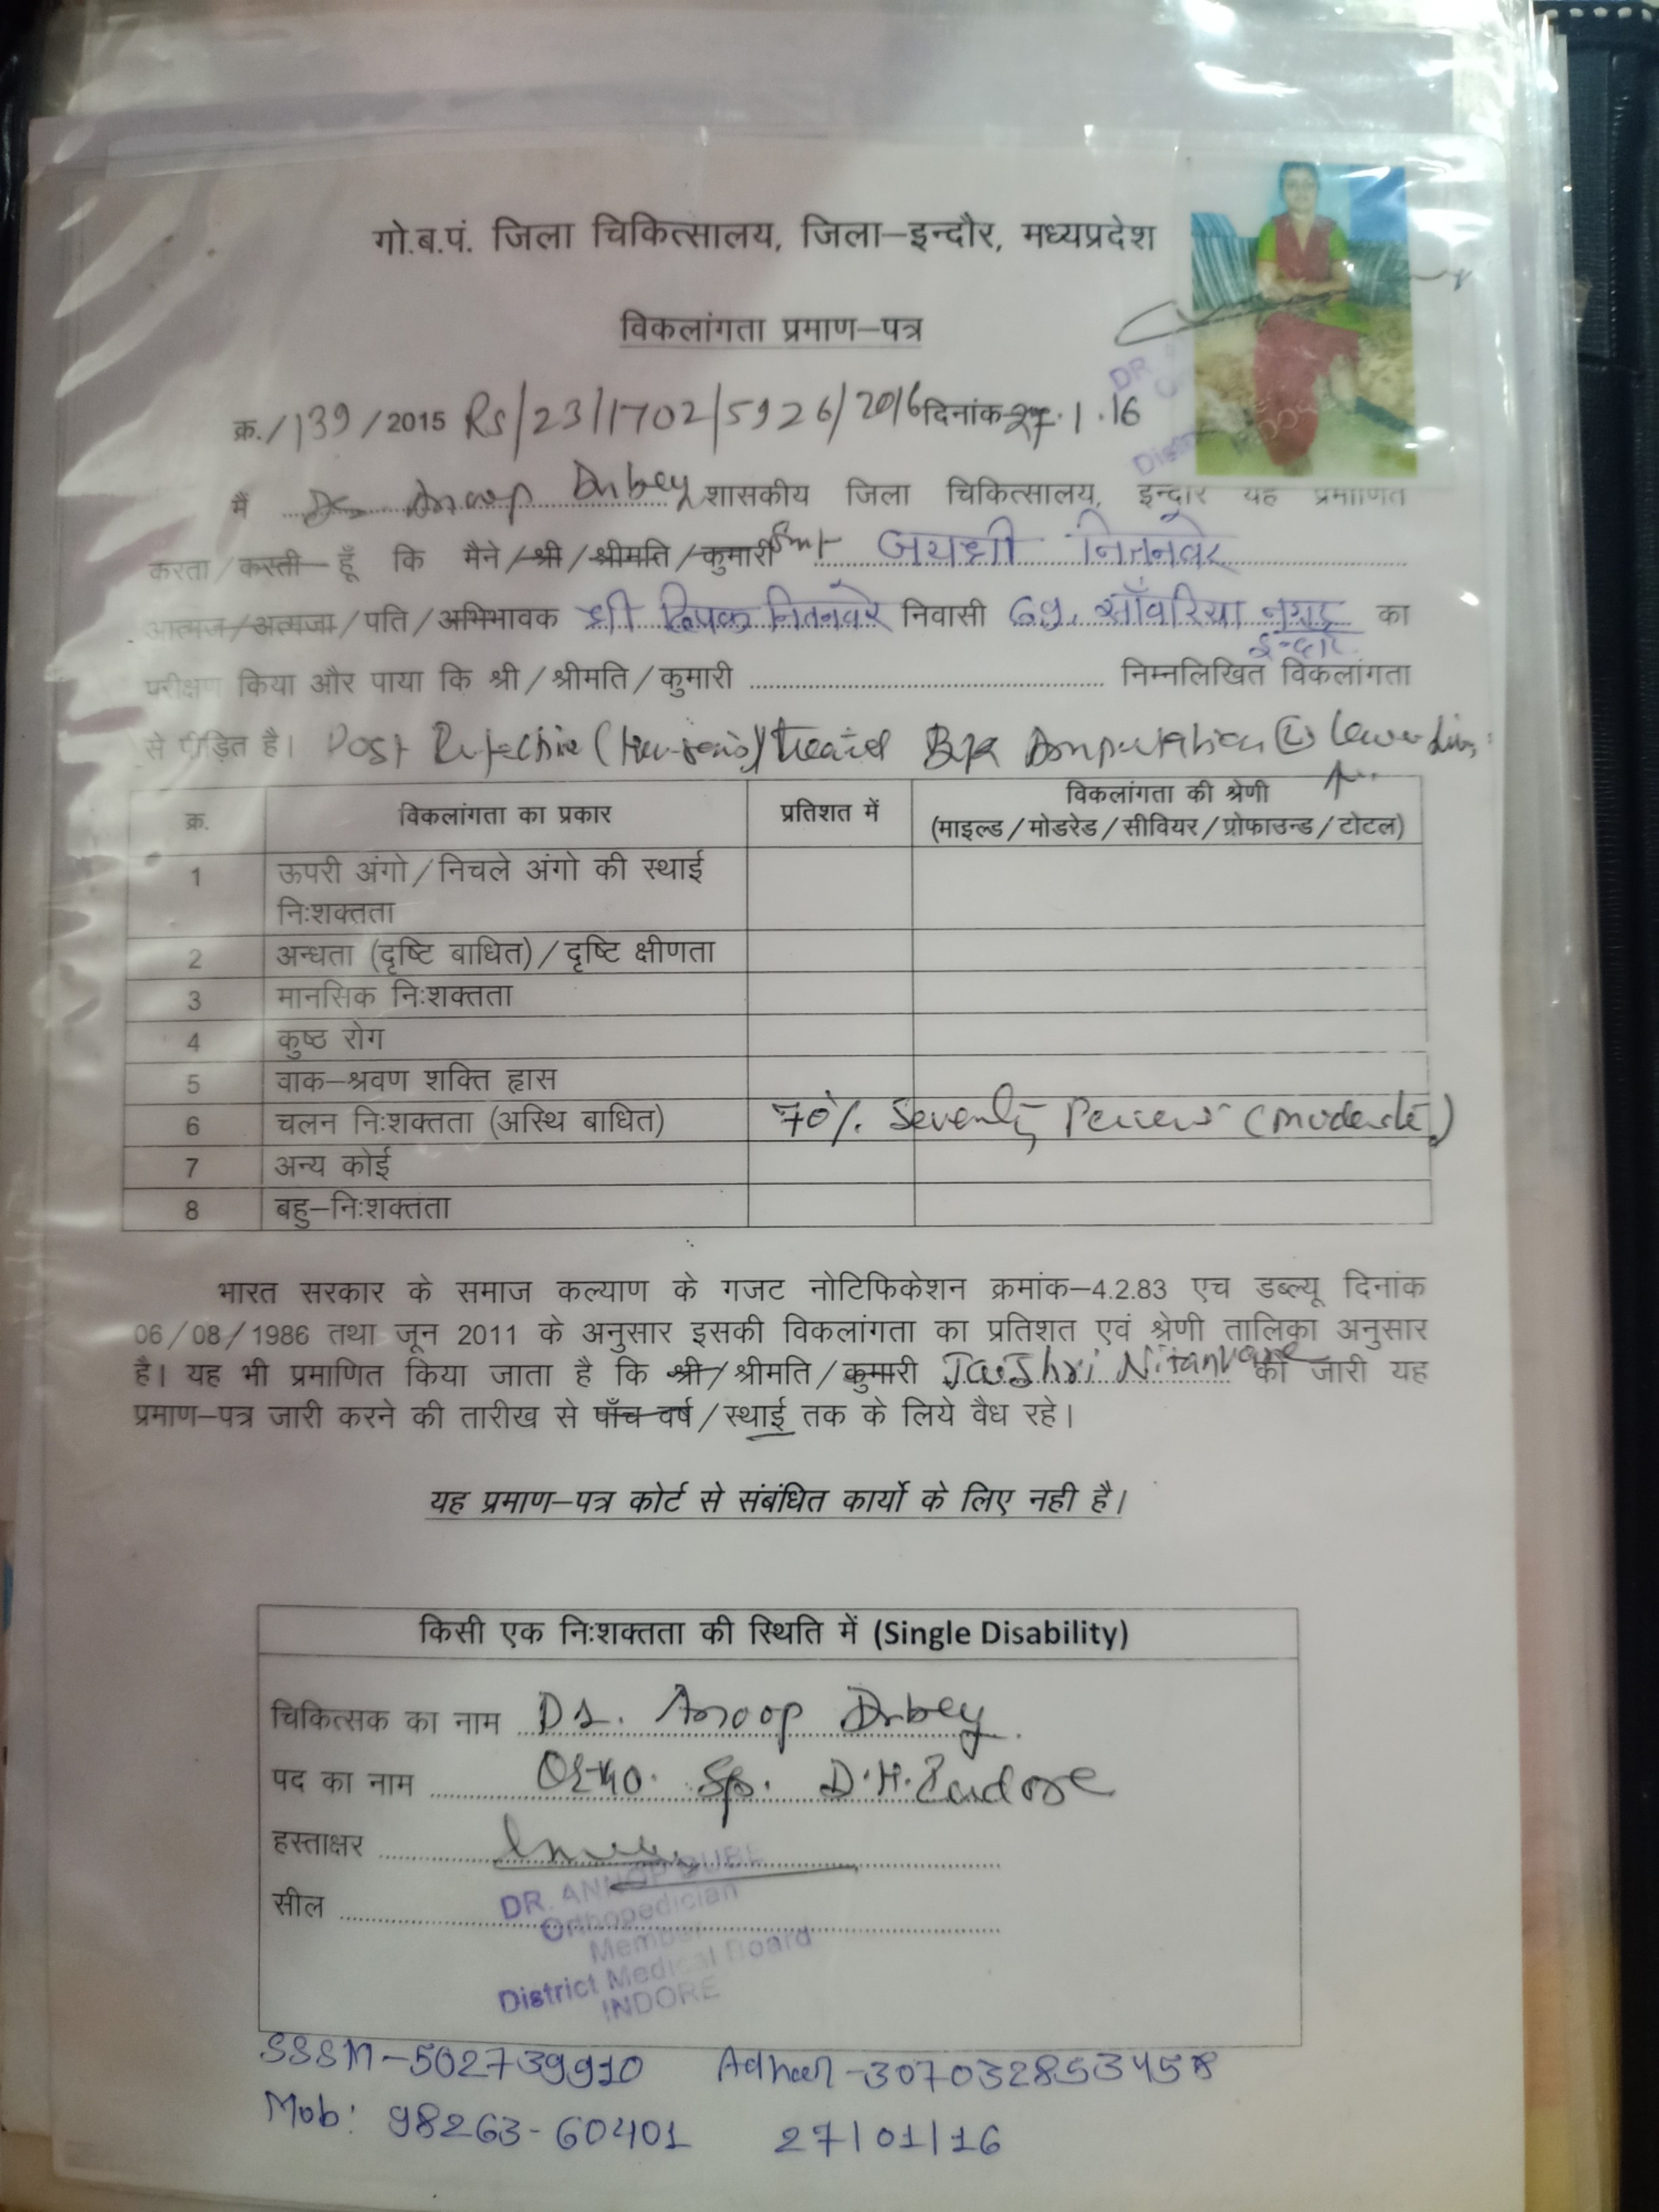 गो.ब.पं. जिला चिकित्सालय, जिला–इन्दौर, मध्यप्रदेश
विकलांगता प्रमाण–पत्र
क्र./139/2015 Rs/23/1702/5926/2016 दिनांक 27.1.16
मैं Dr Anoop Dubey शासकीय जिला चिकित्सालय, इन्दौर यह प्रमाणित
करता/करती हूँ कि मैने/श्री/श्रीमति/कुमारी Smt जयश्री नितनवरे
आत्मज/अत्मजा/पति/अभिभावक श्री दिपक नितनवरे निवासी 69, साँवरिया नगर का
इन्दौर
परीक्षण किया और पाया कि श्री/श्रीमति/कुमारी निम्नलिखित विकलांगता
से पीड़ित है। Post treated B/K Amputation (L) lower limb
क्र. विकलांगता का प्रकार प्रतिशत में विकलांगता की श्रेणी
(माइल्ड/मोडरेड/सीवियर/प्रोफाउन्ड/टोटल)
1 ऊपरी अंगो/निचले अंगो की स्थाई
निःशक्तता
2 अन्धता (दृष्टि बाधित)/दृष्टि क्षीणता
3 मानसिक निःशक्तता
4 कुष्ठ रोग
5 वाक–श्रवण शक्ति ह्रास
6 चलन निःशक्तता (अस्थि बाधित) 70%. Seventy Percent (moderate)
7 अन्य कोई
8 बहु–निःशक्तता
भारत सरकार के समाज कल्याण के गजट नोटिफिकेशन क्रमांक–4.2.83 एच डब्ल्यू दिनांक
06/08/1986 तथा जून 2011 के अनुसार इसकी विकलांगता का प्रतिशत एवं श्रेणी तालिका अनुसार
है। यह भी प्रमाणित किया जाता है कि श्री/श्रीमति/कुमारी Jaishri Nitanvare को जारी यह
प्रमाण–पत्र जारी करने की तारीख से पाँच वर्ष/स्थाई तक के लिये वैध रहे।
यह प्रमाण–पत्र कोर्ट से संबंधित कार्यो के लिए नही है।
किसी एक निःशक्तता की स्थिति में (Single Disability)
चिकित्सक का नाम Dr. Anoop Dubey
पद का नाम Ortho. Sp. D.H. Indore
हस्ताक्षर
सील
DR. ANNOP DUBE
Orthopedician
Member
District Medical Board
INDORE
SSSM-502739910 Adhaar-307032853458
Mob: 98263-60401 27/01/16